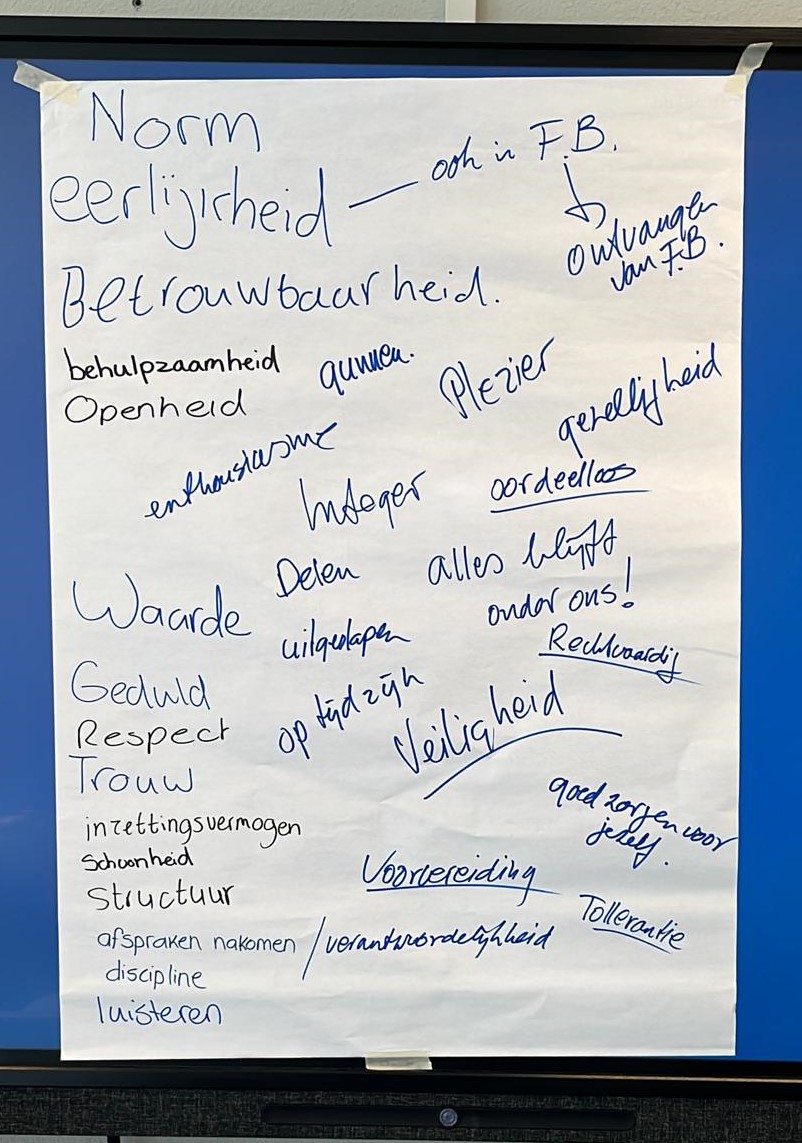 Norm
eerlijkheid — ook in F.B.
ontvangen
van F.B.
Betrouwbaarheid.
behulpzaamheid
gunnen.
Plezier
gezelligheid
Openheid
enthousiasme
Integer
oordeelloos
Delen
alles blijft
onder ons!
Waarde
uitgeslapen
Rechtvaardig
Geduld
op tijd zijn
Veiligheid
Respect
Trouw
goed zorgen voor
jezelf.
inzettingsvermogen
Schoonheid
Voorbereiding
Structuur
Tollerantie
afspraken nakomen / verantwoordelijkheid
discipline
luisteren